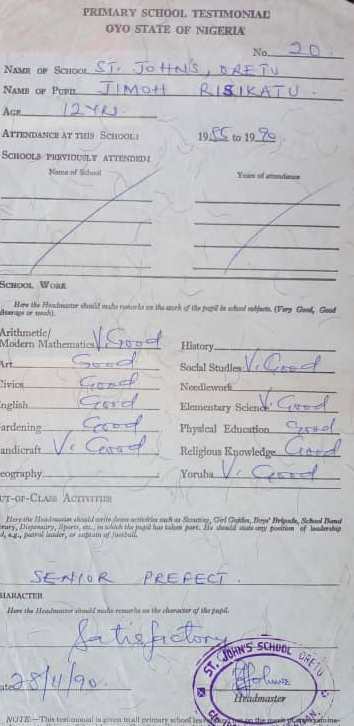 PRIMARY SCHOOL TESTIMONIAL
OYO STATE OF NIGERIA
No. 20
NAME OF SCHOOL ST. JOHN'S, ORETU
NAME OF PUPIL JIMOH RISIKATU.
AGE 12 YRS
ATTENDANCE AT THIS SCHOOL: 1985 to 1990
SCHOOLS PREVIOUSLY ATTENDED:
Name of School Years of attendance
SCHOOL WORK
Here the Headmaster should make remarks on the work of the pupil in school subjects. (Very Good, Good
Average or weak).
Arithmetic/
Modern Mathematics V. Good History
Art Good Social Studies V. Good
Civics Good Needlework
English Good Elementary Science V. Good
ardening Good Physical Education Good
andicraft V. Good Religious Knowledge Good
eography Yoruba V. Good
UT-OF-CLASS ACTIVITIES
Here the Headmaster should write down activities such as Scouting, Girl Guides, Boys' Brigade, School Band
rary, Dispensary, Sports, etc., in which the pupil has taken part. He should state any position of leadership
d, e.g., patrol leader, or captain of football.
SENIOR PREFECT.
HARACTER
Here the Headmaster should make remarks on the character of the pupil.
Satisfactory
ate 28/11/90 ST. JOHN'S SCHOOL ORETU
Headmaster
NOTE:—This testimonial is given to all primary school